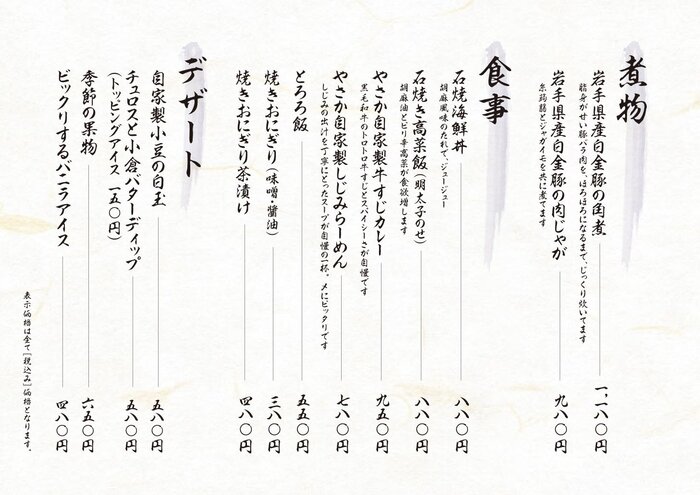 煮物
岩手県産白金豚の角煮 一、一八〇円
脂身がせい豚バラ肉を、ほろほろになるまで、じっくり炊いてます
岩手県産白金豚の肉じゃが 九八〇円
糸蒟蒻とジャガイモを共に煮てます
食事
石焼海鮮丼 八八〇円
胡麻風味のたれで、ジュージュー
石焼き高菜飯(明太子のせ) 八八〇円
胡麻油とピリ辛高菜が食欲増します
やさか自家製牛すじカレー 九五〇円
黒毛和牛のトロトロ牛すじとスパイシーさが自慢です
やさか自家製しじみらーめん 七八〇円
しじみの出汁を丁寧にとったスープが自慢の一杯。〆にピッタリです
とろろ飯 五五〇円
焼きおにぎり(味噌・醤油) 三八〇円
焼きおにぎり茶漬け 四八〇円
デザート
自家製小豆の白玉 五八〇円
チュロスと小倉バターディップ 五八〇円
(トッピングアイス 一五〇円)
季節の果物 六五〇円
ビックリするバニラアイス 四八〇円
表示価格は全て[税込み]価格となります。